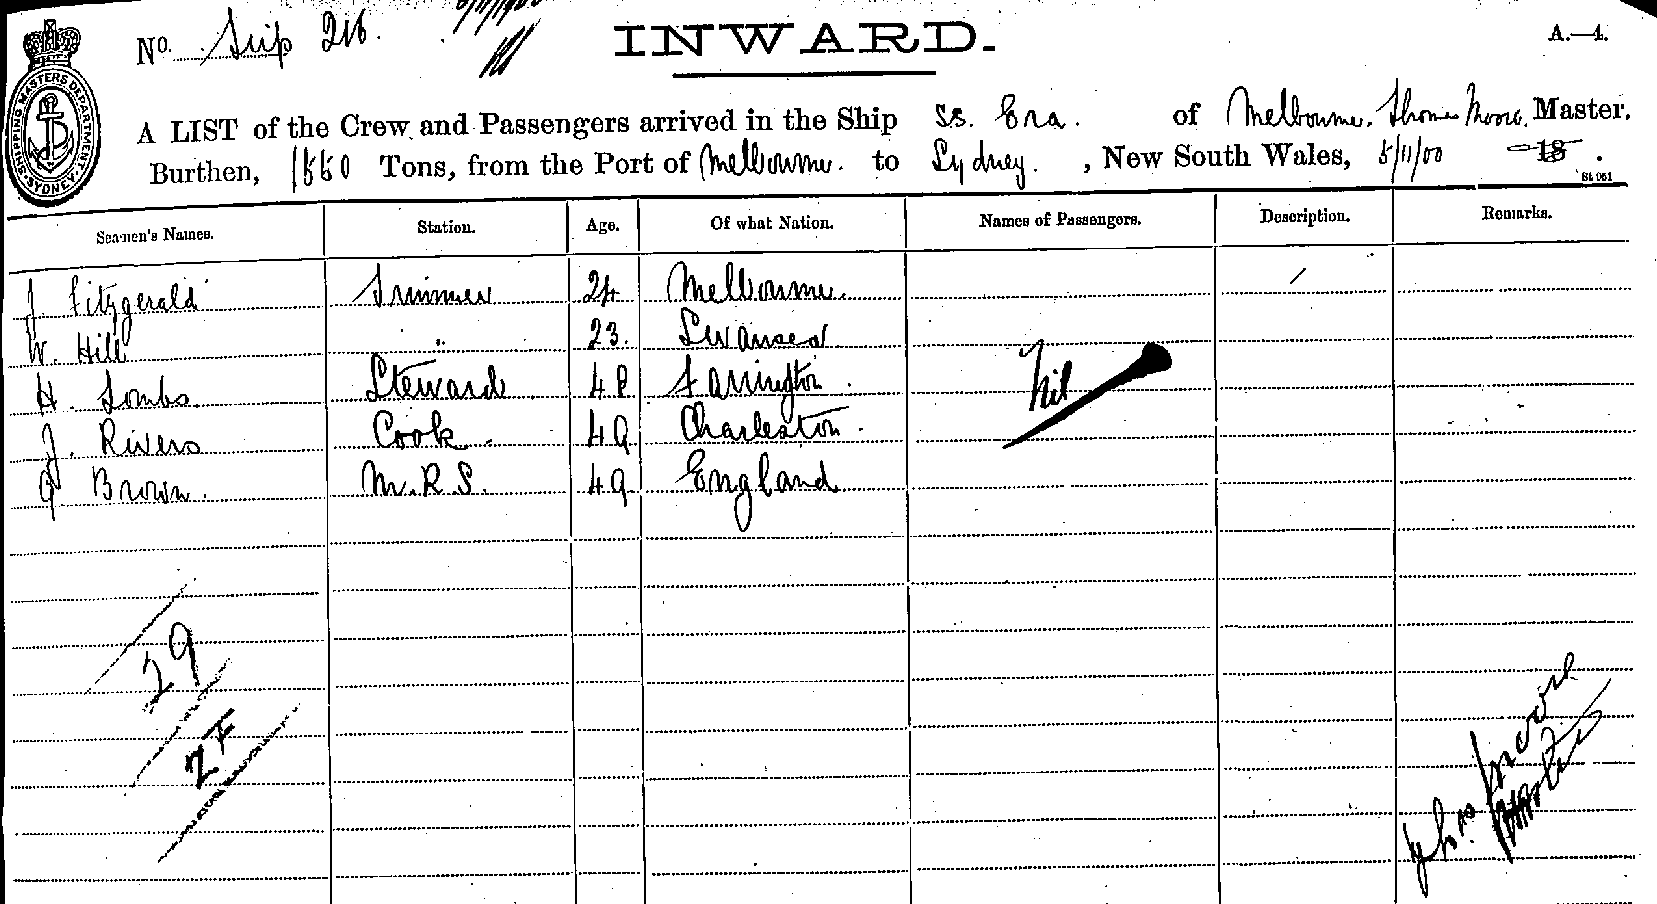 No. Slip 216.
INWARD.
A.—4.
SHIPPING MASTERS DEPARTMENT SYDNEY
A LIST of the Crew and Passengers arrived in the Ship SS. Era. of Melbourne. Thomas Moore, Master.
Burthen, 1550 Tons, from the Port of Melbourne. to Sydney. , New South Wales, 5/11/00 18 .
St 951
Seamen's Names. Station. Age. Of what Nation. Names of Passengers. Description. Remarks.
J Fitzgerald Trimmer 24 Melbourne. /
W. Hill " 23. Swansea
H. Tombs. Steward 48 Farrington. Nil
J. Rivers Cook. 49 Charleston.
G Brown. M.R.S. 49 England
29
2F
Thos. Moore
Master